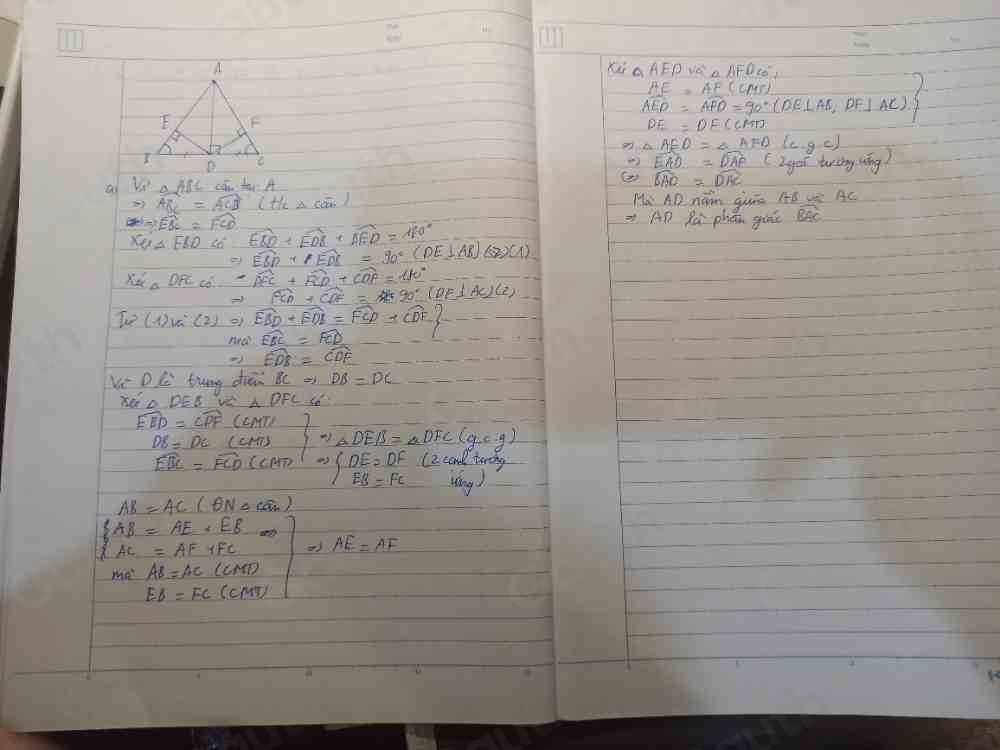 A
E
F
B
D
C
a) Vì △ABC cân tại A
=> ABC = ACB (t/c △ cân)
=> EBC = FCD
Xét △ EBD có EBD + EDB + BED = 180°
=> EBD + EDB = 90° (DE ⊥ AB) (1)
Xét △ DFC có DFC + FCD + CDF = 180°
=> FCD + CDF = 90° (DF ⊥ AC) (2)
Từ (1) và (2) => EBD + EDB = FCD + CDF
mà EBC = FCD
=> EDB = CDF
Vì D là trung điểm BC => DB = DC
Xét △ DEB và △ DFC có:
EBD = CDF (CMT)
DB = DC (CMT) => △DEB = △DFC (g.c.g)
EBC = FCD (CMT) => { DE = DF (2 cạnh tương
EB = FC ứng)
AB = AC (ĐN △ cân)
AB = AE + EB
AC = AF + FC => AE = AF
mà AB = AC (CMT)
EB = FC (CMT)
Xét △ AED và △ AFD có:
AE = AF (CMT)
AED = AFD = 90° (DE ⊥ AB, DF ⊥ AC)
DE = DF (CMT)
=> △ AED = △ AFD (c.g.c)
=> EAD = DAF (2 góc tương ứng)
=> BAD = DAC
Mà AD nằm giữa AB và AC
=> AD là phân giác BAC